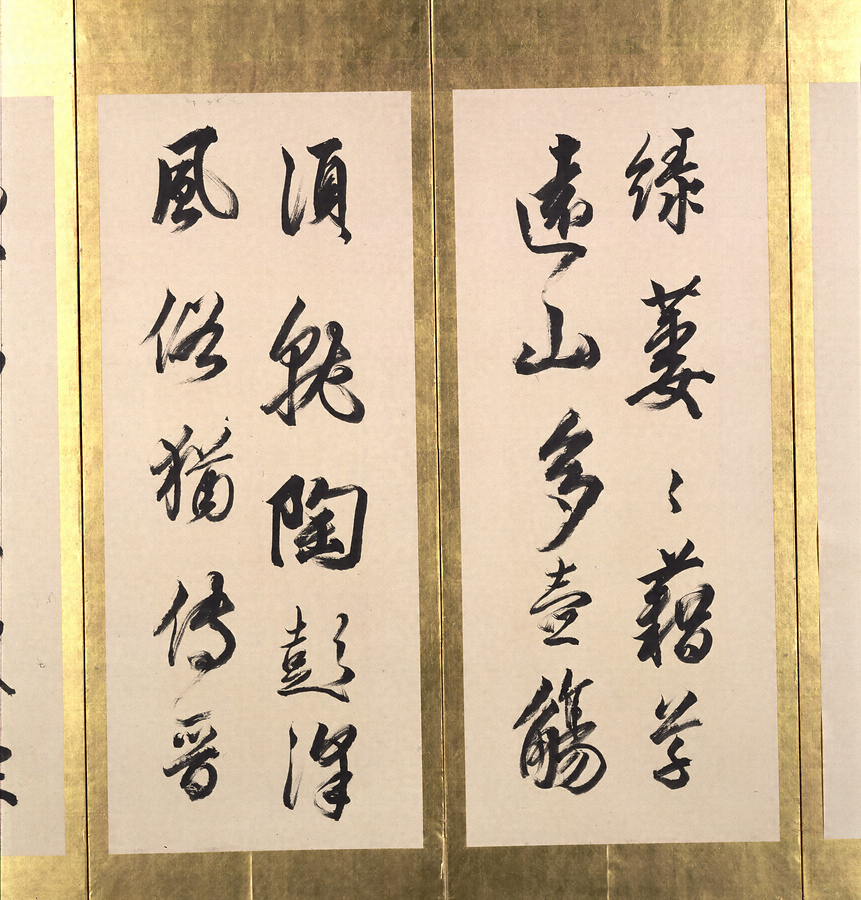 緑萋〻藉草
遠山多壺觴
須就陶彭澤
風俗猶傳晉